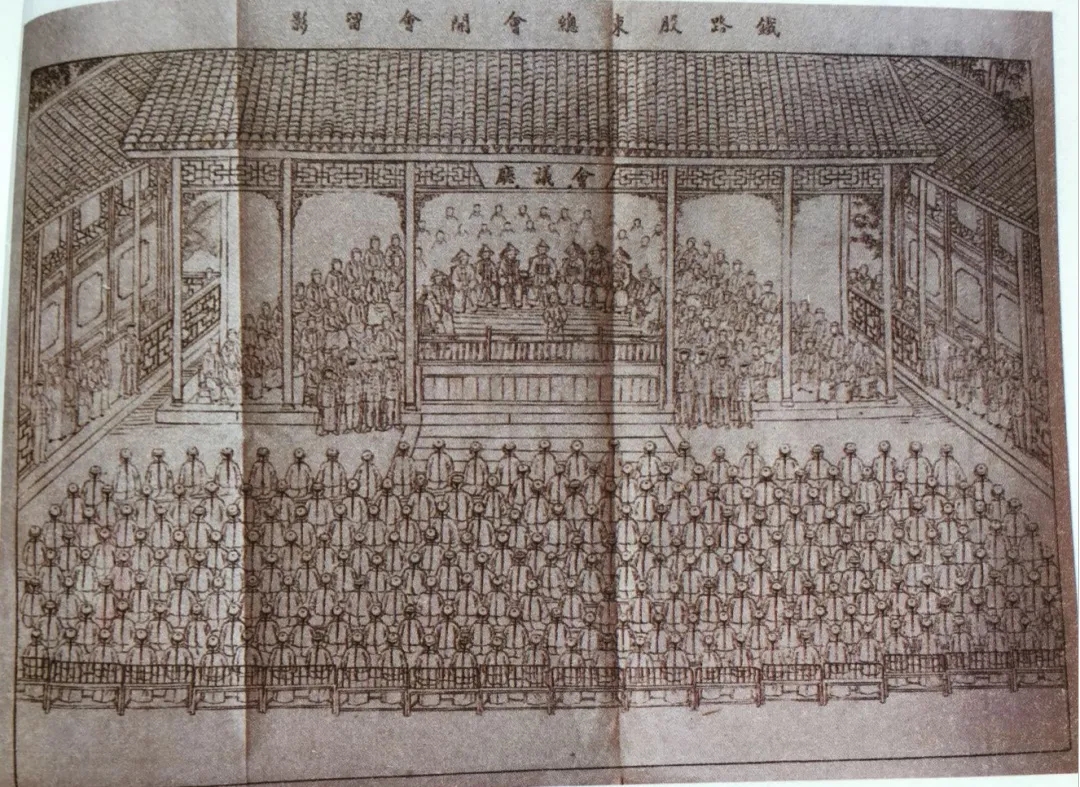 鐵路股東總會開會留影
會議廳